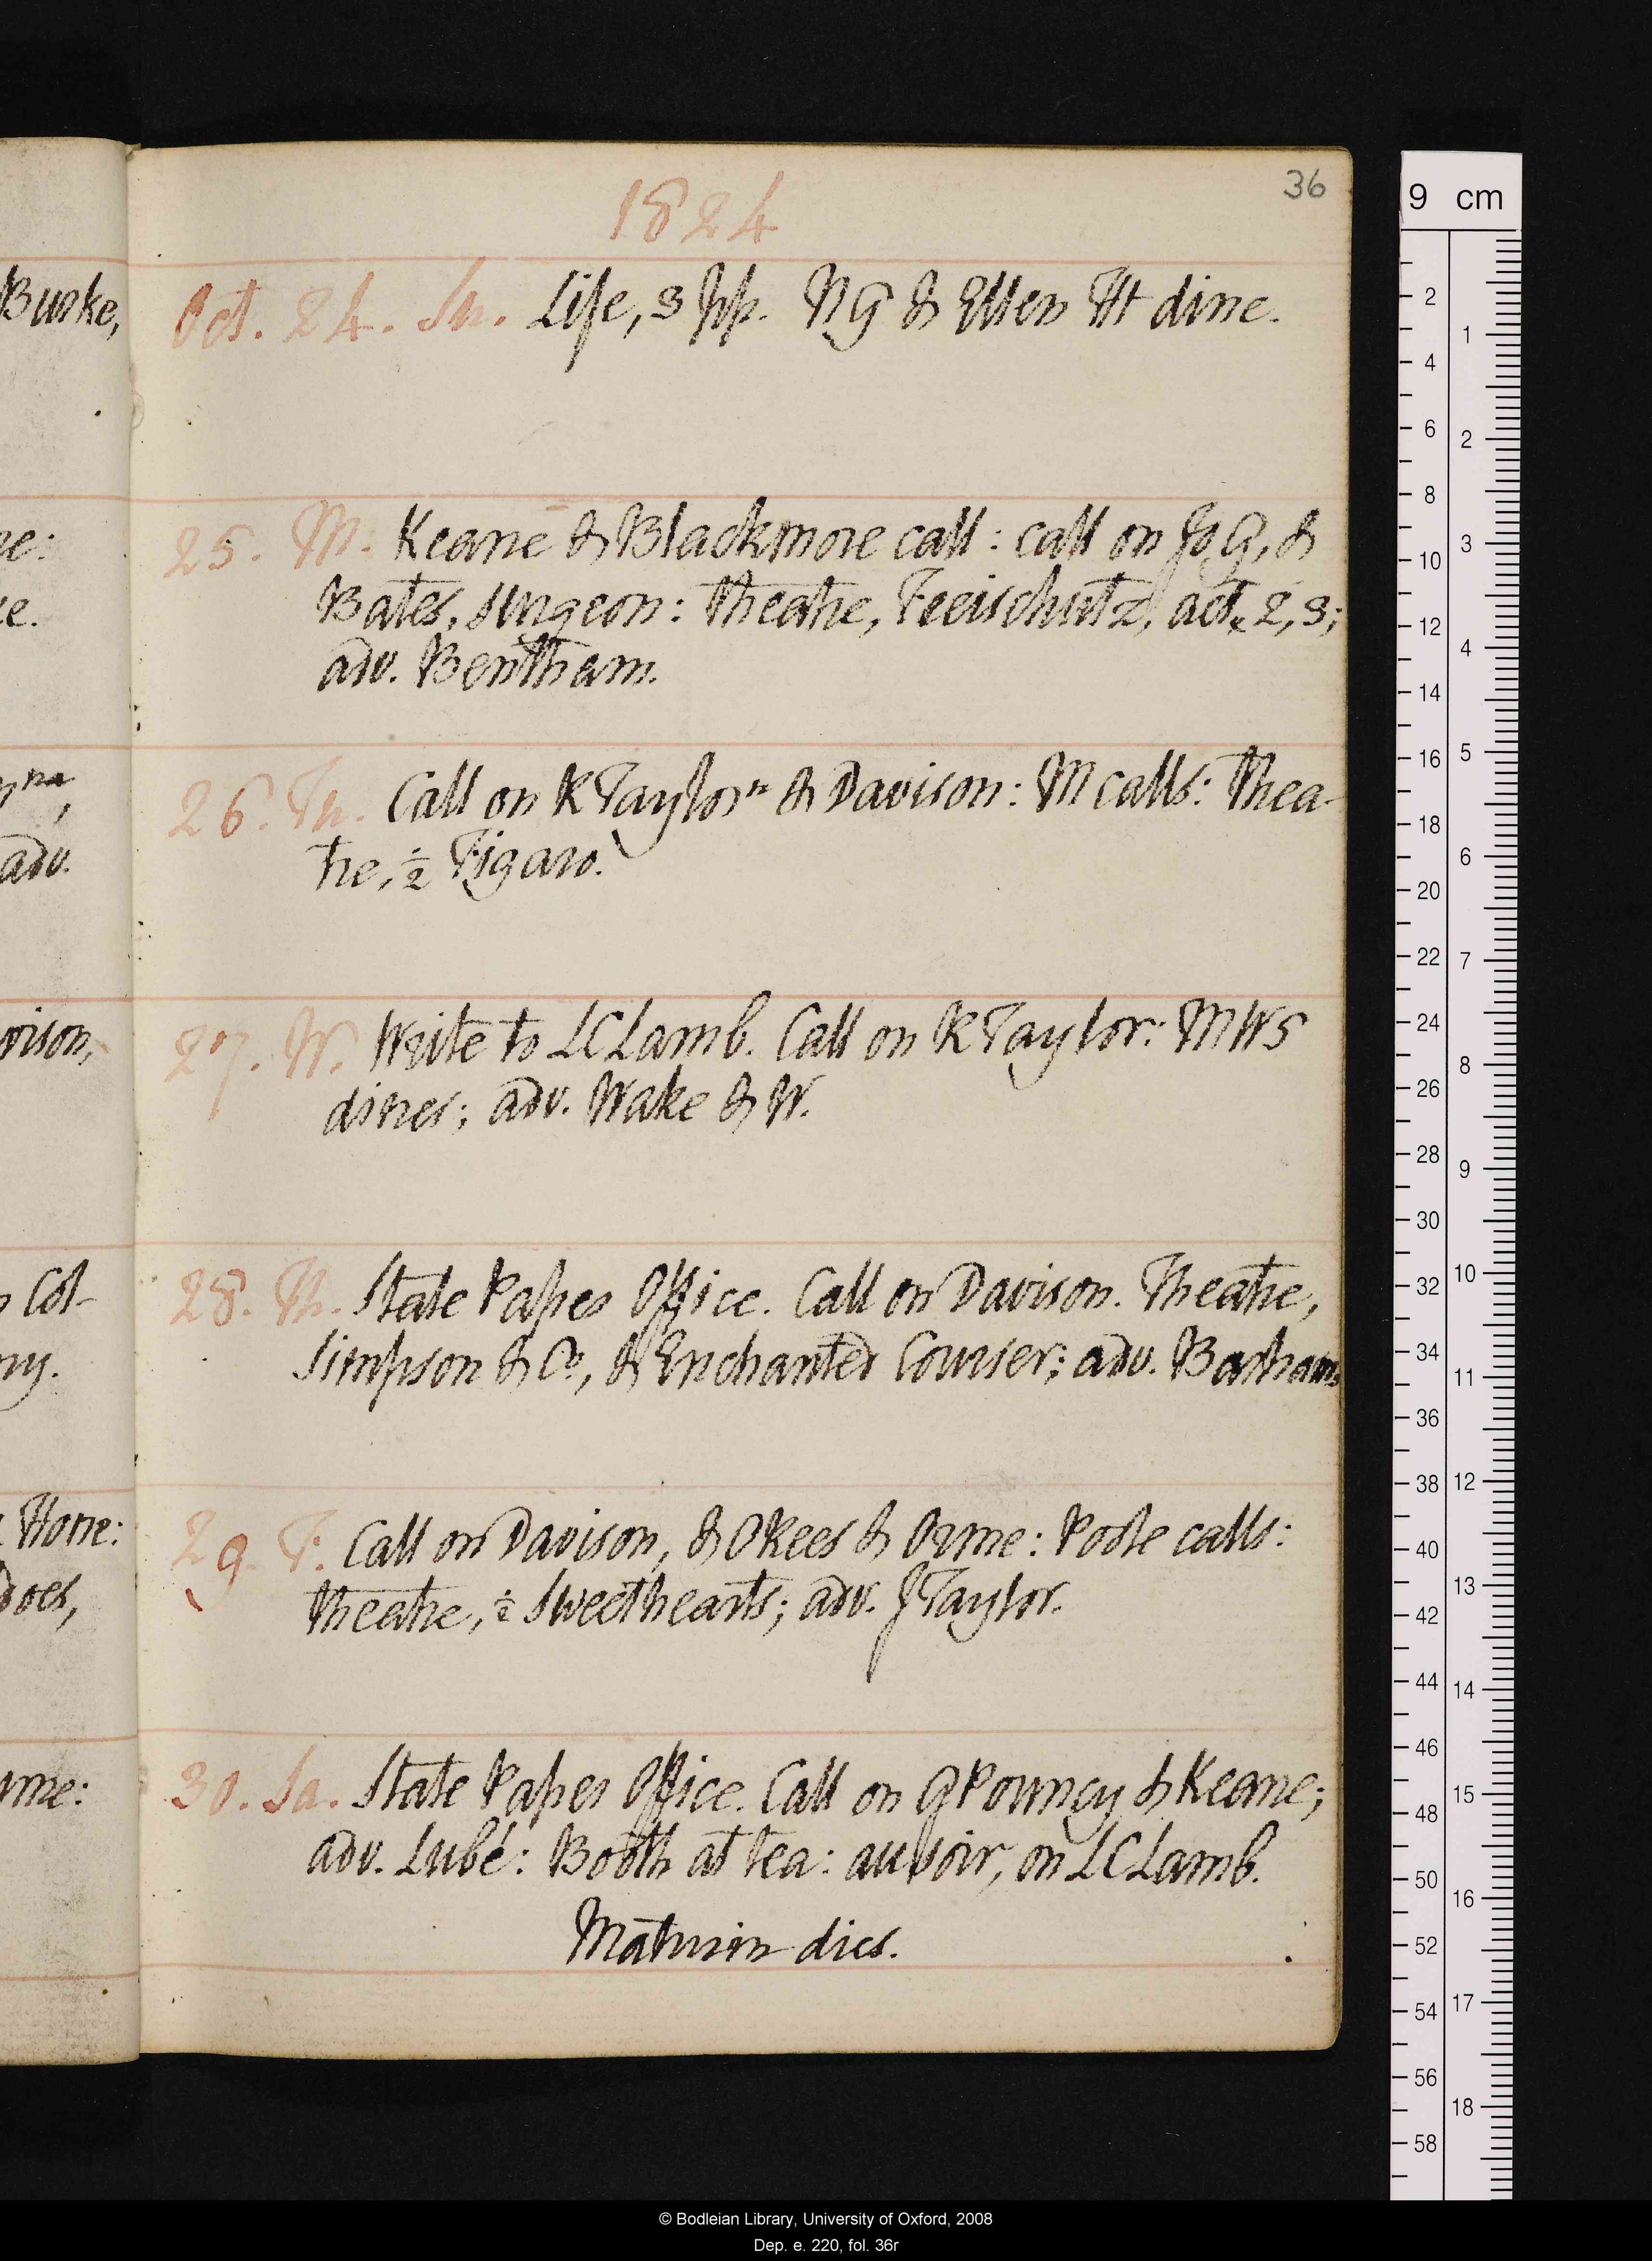 36
1824
Burke,
Oct. 24. Su. Life, 3 pp. N G & Ellen Ht dine.
25. M. Keane & Blackmore call: call on Jo G, &
Bates, surgeon: theatre, Freischutz, act. 2, 3;
adv. Bentham.
26. Tu. Call on R Taylor n & Davison: M calls: thea-
tre, ½ Figaro.
adv.
27. W. Write to L C Lamb. Call on R Taylor: M W S
dines; adv. Wake & W.
28. Th. State Paper Office. Call on Davison. Theatre,
Simpson & Co, & Enchanted Courser; adv. Barham.
Col-
29. F. Call on Davison, & Rees & Orme: Poole calls:
theatre, ½ Sweethearts; adv. J Taylor.
Hone:
30. Sa. State Paper Office. Call on G Pouncy & Keane;
adv. Lubé: Booth at tea: au voir, on L C Lamb.
Maturin dies.
9 cm
2
4
6
8
10
12
14
16
18
20
22
24
26
28
30
32
34
36
38
40
42
44
46
48
50
52
54
56
58
1
2
3
4
5
6
7
8
9
10
11
12
13
14
15
16
17
18
© Bodleian Library, University of Oxford, 2008
Dep. e. 220, fol. 36r